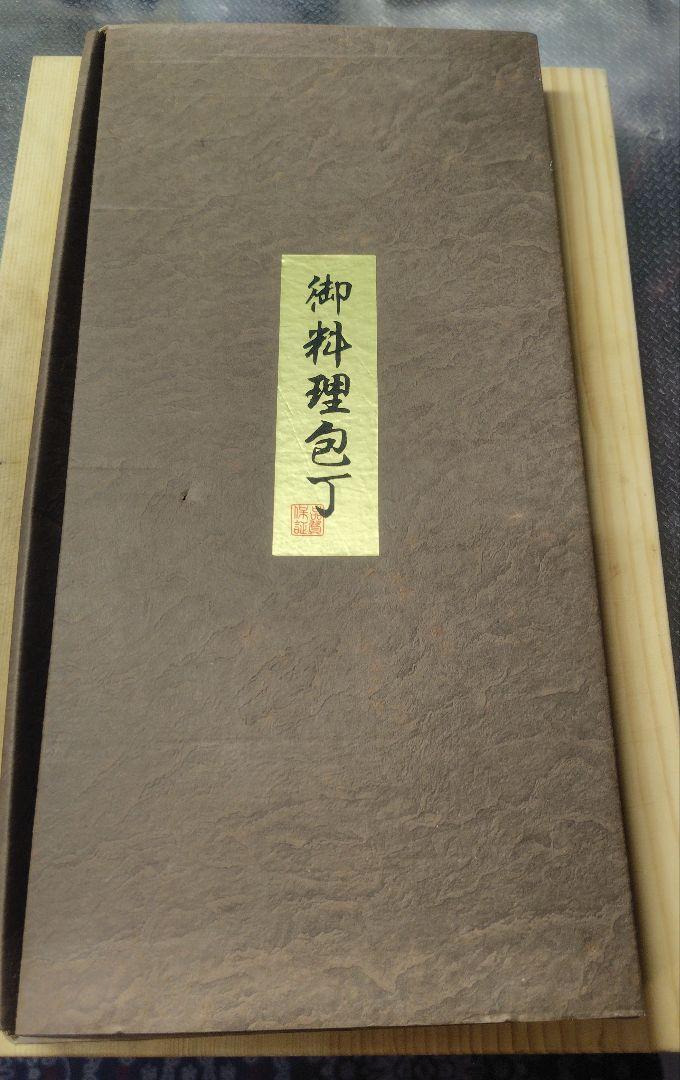 御料理包丁
品質
保証